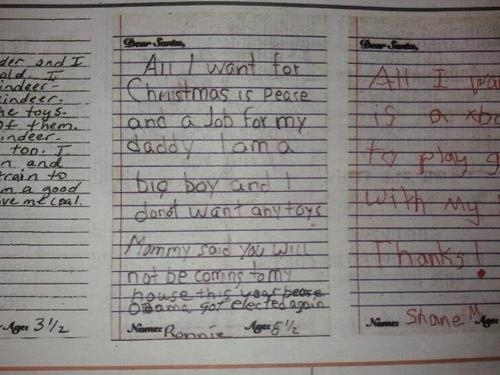 der and I
old. I
indeer-
indeer.
he toys.
of them.
indeer-
ton. I
n and
train to
m a good
ve me coal.
Age: 3 1/2
Dear Santa,
All I want for
Christmas is pease
and a Job for my
daddy I am a
big boy and I
donot want any toys
Mommy said you will
not be coming to my
house this year pease
OBama got elected again
Name: Ronnie Age: 6 1/2
Dear Santa,
All I wa
is a xbo
to play g
with my
Thanks!
Name: Shane M Age: